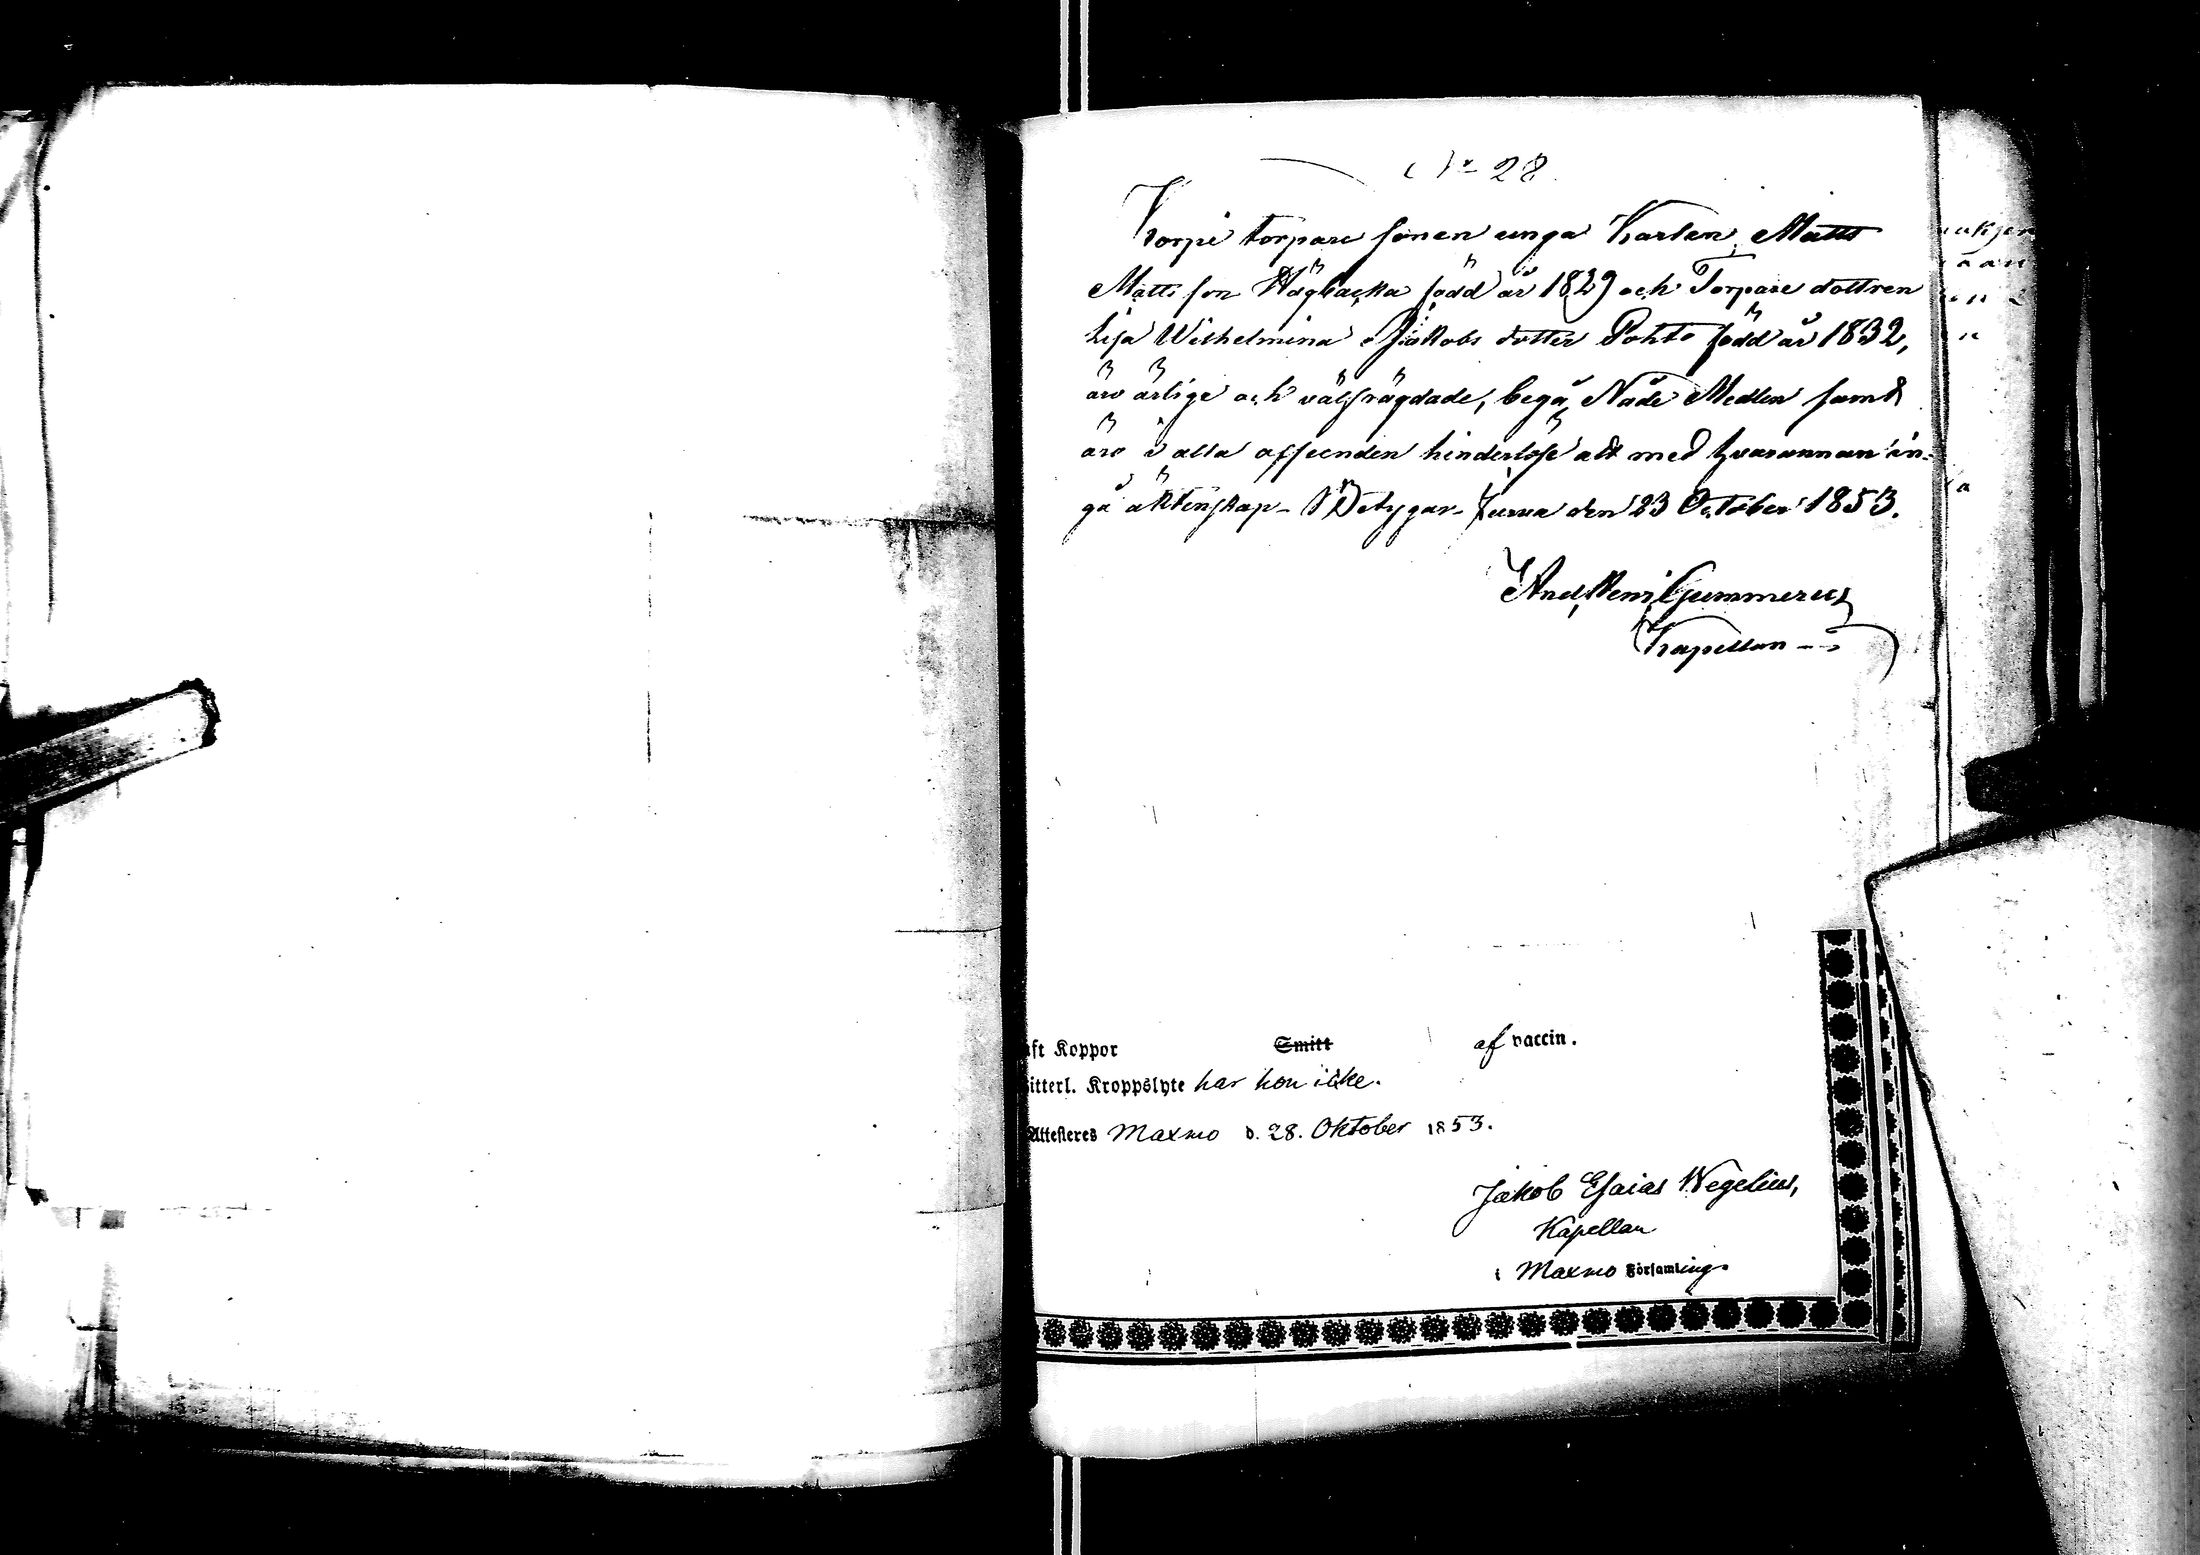 No 28
Torpé torpare sonen unga Karlen Matts
Matts son Hägbacka född år 1829 och Torpare dottren
Lisa Wilhelmina Jakobs dotter Pohto född år 1832,
äro ärlige och välfrägdade, begå Nåde Medlen samt
äro i alla afseenden hinderlöse att med hvarannan in-
gå äktenskap. Betygar. Jurva den 23 October 1853.
And. Henr. Gummerus
Kapellan
aft Koppor Smitt af vaccin.
itterl. Kroppslyte har hon icke.
Attesteres Maxmo d. 28. Oktober 1853.
Jakob Esaias Wegelius,
Kapellan
i Maxmo Församling.